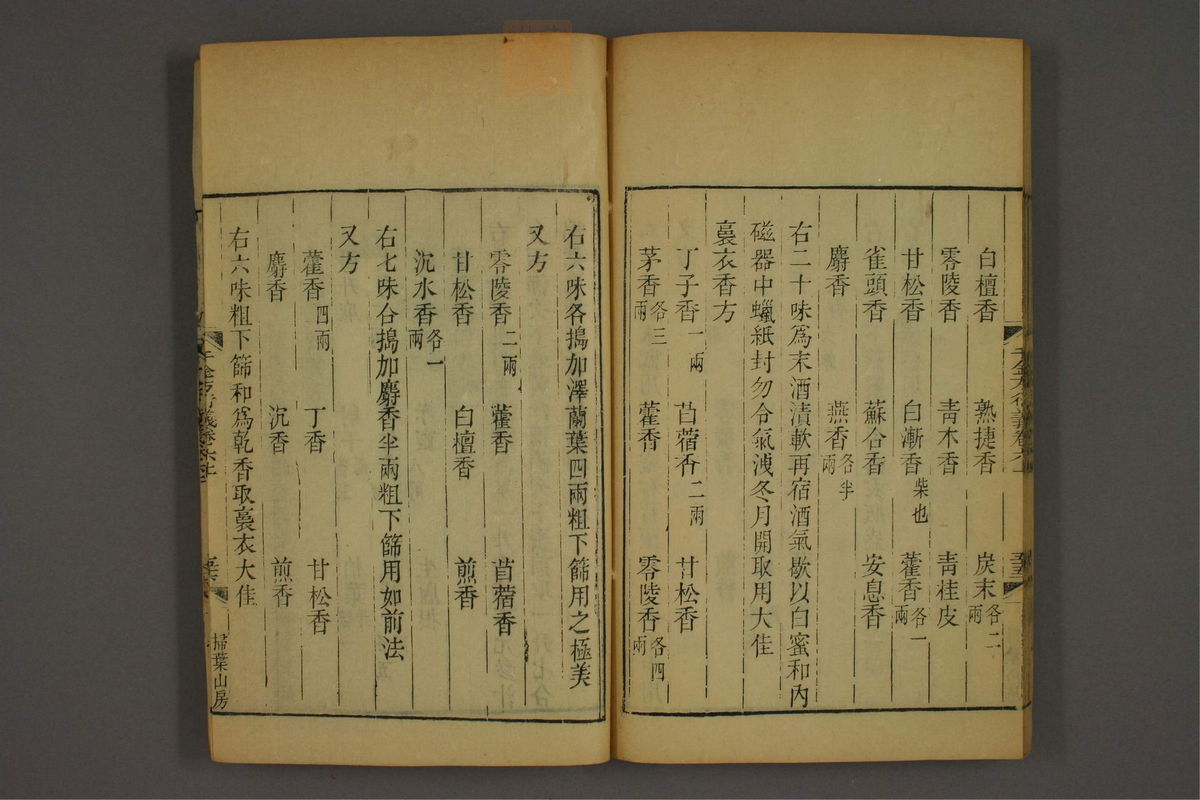 白檀香 熟捷香 炭末各二兩
零陵香 青木香 青桂皮
甘松香 白漸香柴也 藿香各一兩
雀頭香 蘇合香 安息香
麝香 燕香各半兩
右二十味爲末酒漬軟再宿酒氣歇以白蜜和內
磁器中蠟紙封勿令氣洩冬月開取用大佳
裛衣香方
丁子香一兩 苜蓿香二兩 甘松香
茅香各三兩 藿香 零陵香各四兩
右六味各搗加澤蘭葉四兩粗下篩用之極美
又方
零陵香二兩 藿香 苜蓿香
甘松香 白檀香 煎香
沉水香各一兩
右七味合搗加麝香半兩粗下篩用如前法
又方
藿香四兩 丁香 甘松香
麝香 沉香 煎香
右六味粗下篩和爲乾香取裛衣大佳
千金方衍義卷六上
掃葉山房